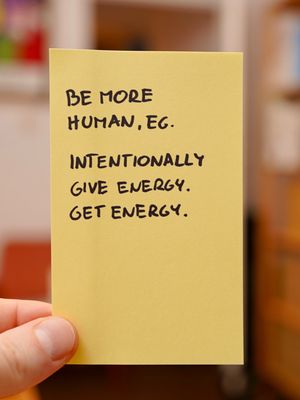 BE MORE
HUMAN, EG.
INTENTIONALLY
GIVE ENERGY.
GET ENERGY.